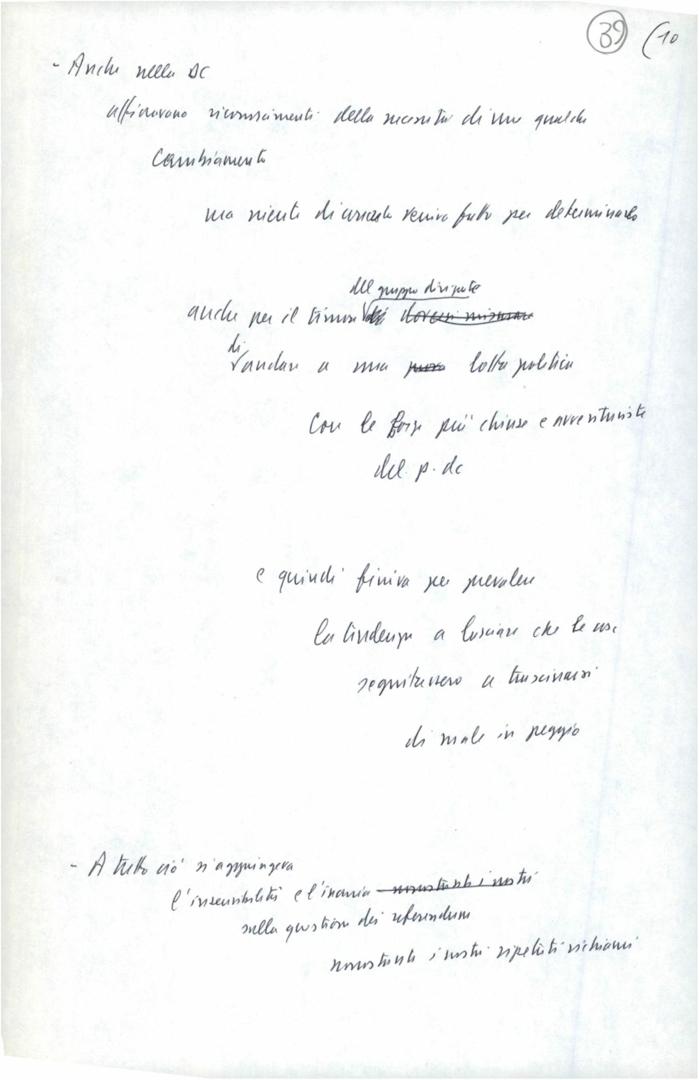 39 (10
- Anche nella DC
affioravano riconoscimenti della necessità di un qualche
cambiamento
ma niente di veniva fatto per determinarlo
del gruppo dirigente
anche per il timore di
di andare a una lotta politica
con le forze più chiuse e avventuriste
del p. dc
e quindi finiva per prevalere
la tendenza a lasciare che le cose
seguitassero a trascinarsi
di male in peggio
- A tutto ciò si aggiungeva
l'insensibilità e l'inerzia nonostante i nostri
sulla questione dei referendum
nonostante i nostri ripetuti richiami